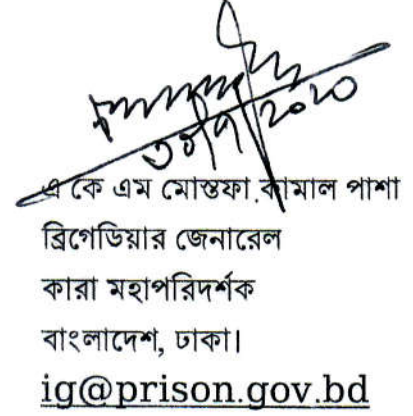 এ কে এম মোস্তফা কামাল পাশা
ব্রিগেডিয়ার জেনারেল
কারা মহাপরিদর্শক
বাংলাদেশ, ঢাকা।
ig@prison.gov.bd